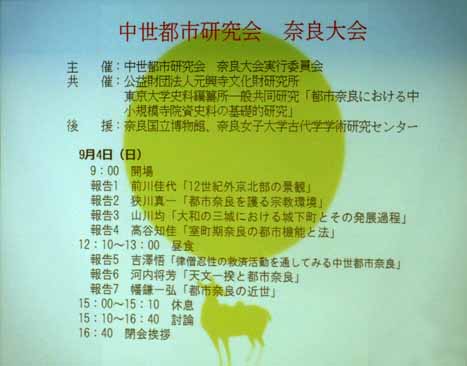 中世都市研究会　奈良大会
主　催：中世都市研究会　奈良大会実行委員会
共　催：公益財団法人元興寺文化財研究所
東京大学史料編纂所一般共同研究「都市奈良における中
小規模寺院資史料の基礎的研究」
後　援：奈良国立博物館、奈良女子大学古代学学術研究センター
9月4日（日）
9：00　開場
報告1　前川佳代「12世紀外京北部の景観」
報告2　狭川真一「都市奈良を護る宗教環境」
報告3　山川均「大和の三城における城下町とその発展過程」
報告4　高谷知佳「室町期奈良の都市機能と法」
12：10～13：00　昼食
報告5　吉澤悟「律僧忍性の救済活動を通してみる中世都市奈良」
報告6　河内将芳「天文一揆と都市奈良」
報告7　幡鎌一弘「都市奈良の近世」
15：00～15：10　休息
15：10～16：40　討論
16：40　閉会挨拶